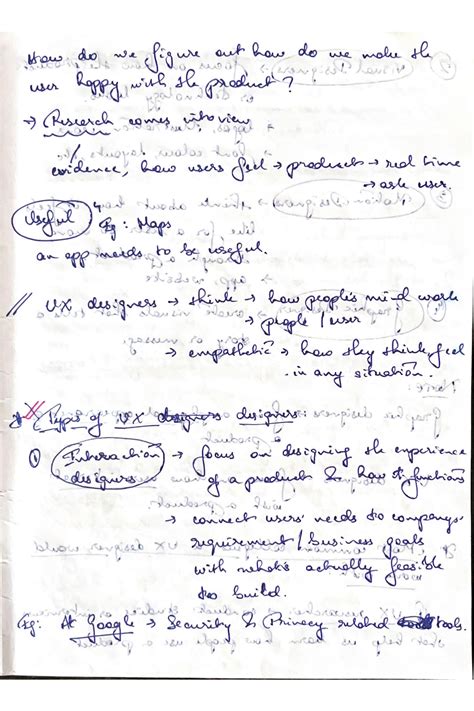 How do we figure out how do we make the
user happy with the product?
→ Research comes into view
evidence, how users feel → products → real time
→ ask user.
Useful
Eg: Maps
an app needs to be useful.
// UX designers → think → how people's mind work
→ people / user
→ empathetic → how they think, feel
in any situation.
Types of UX designers designers:
① Interaction designers → focus on designing the experience
of a product & how it functions
→ connect users' needs to companys'
requirement / business goals
with what's actually feasible
to build.
Eg: At Google → Security & Privacy related tools.